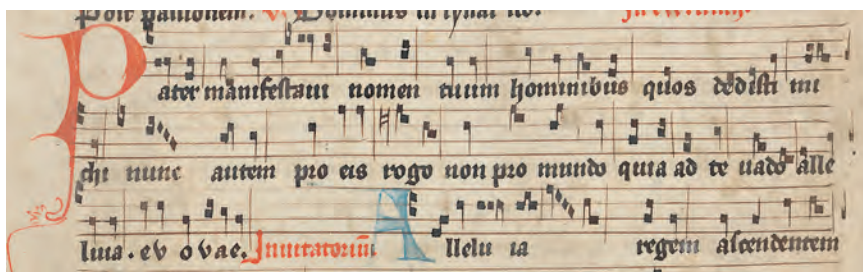 Dominus in
Pater manifestaui nomen tuum hominibus quos dedisti mi
chi nunc autem pro eis rogo non pro mundo quia ad te uado alle
luia. ev ovae. Inuitatoriu͞ Allelu ia regem ascendentem